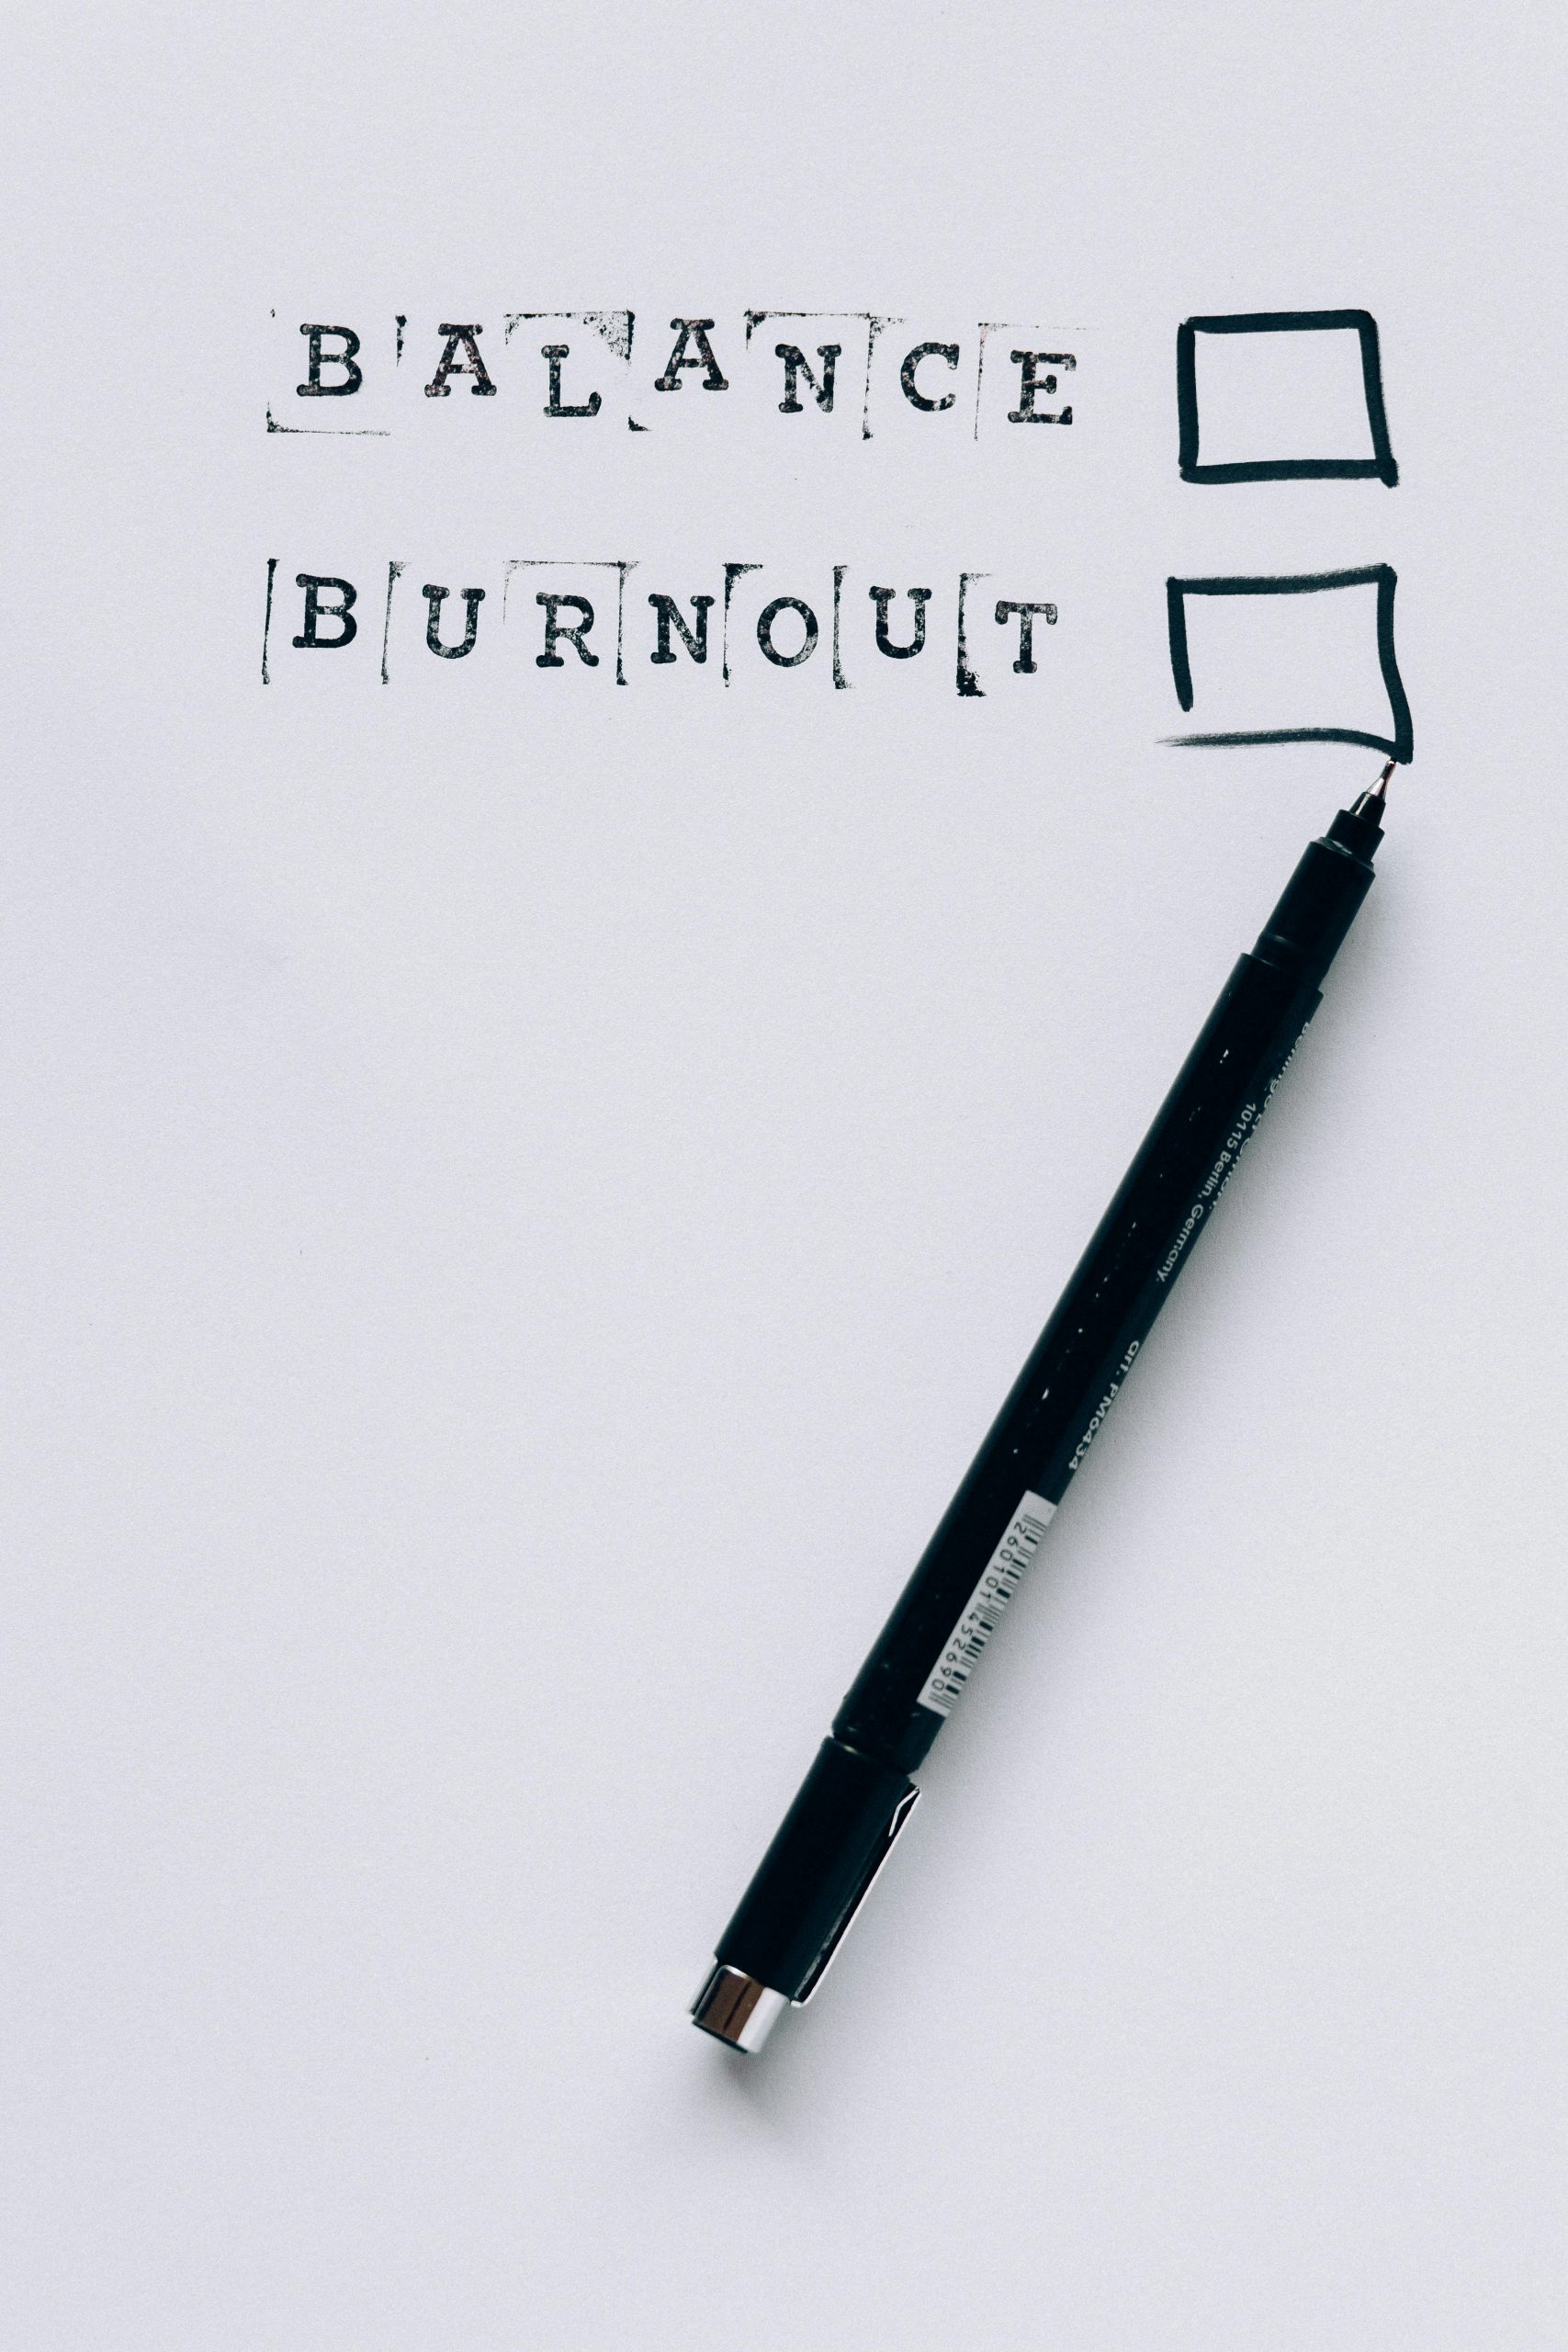 BALANCE
BURNOUT
10115 Berlin, Germany.
art. PM6434
2601011452690